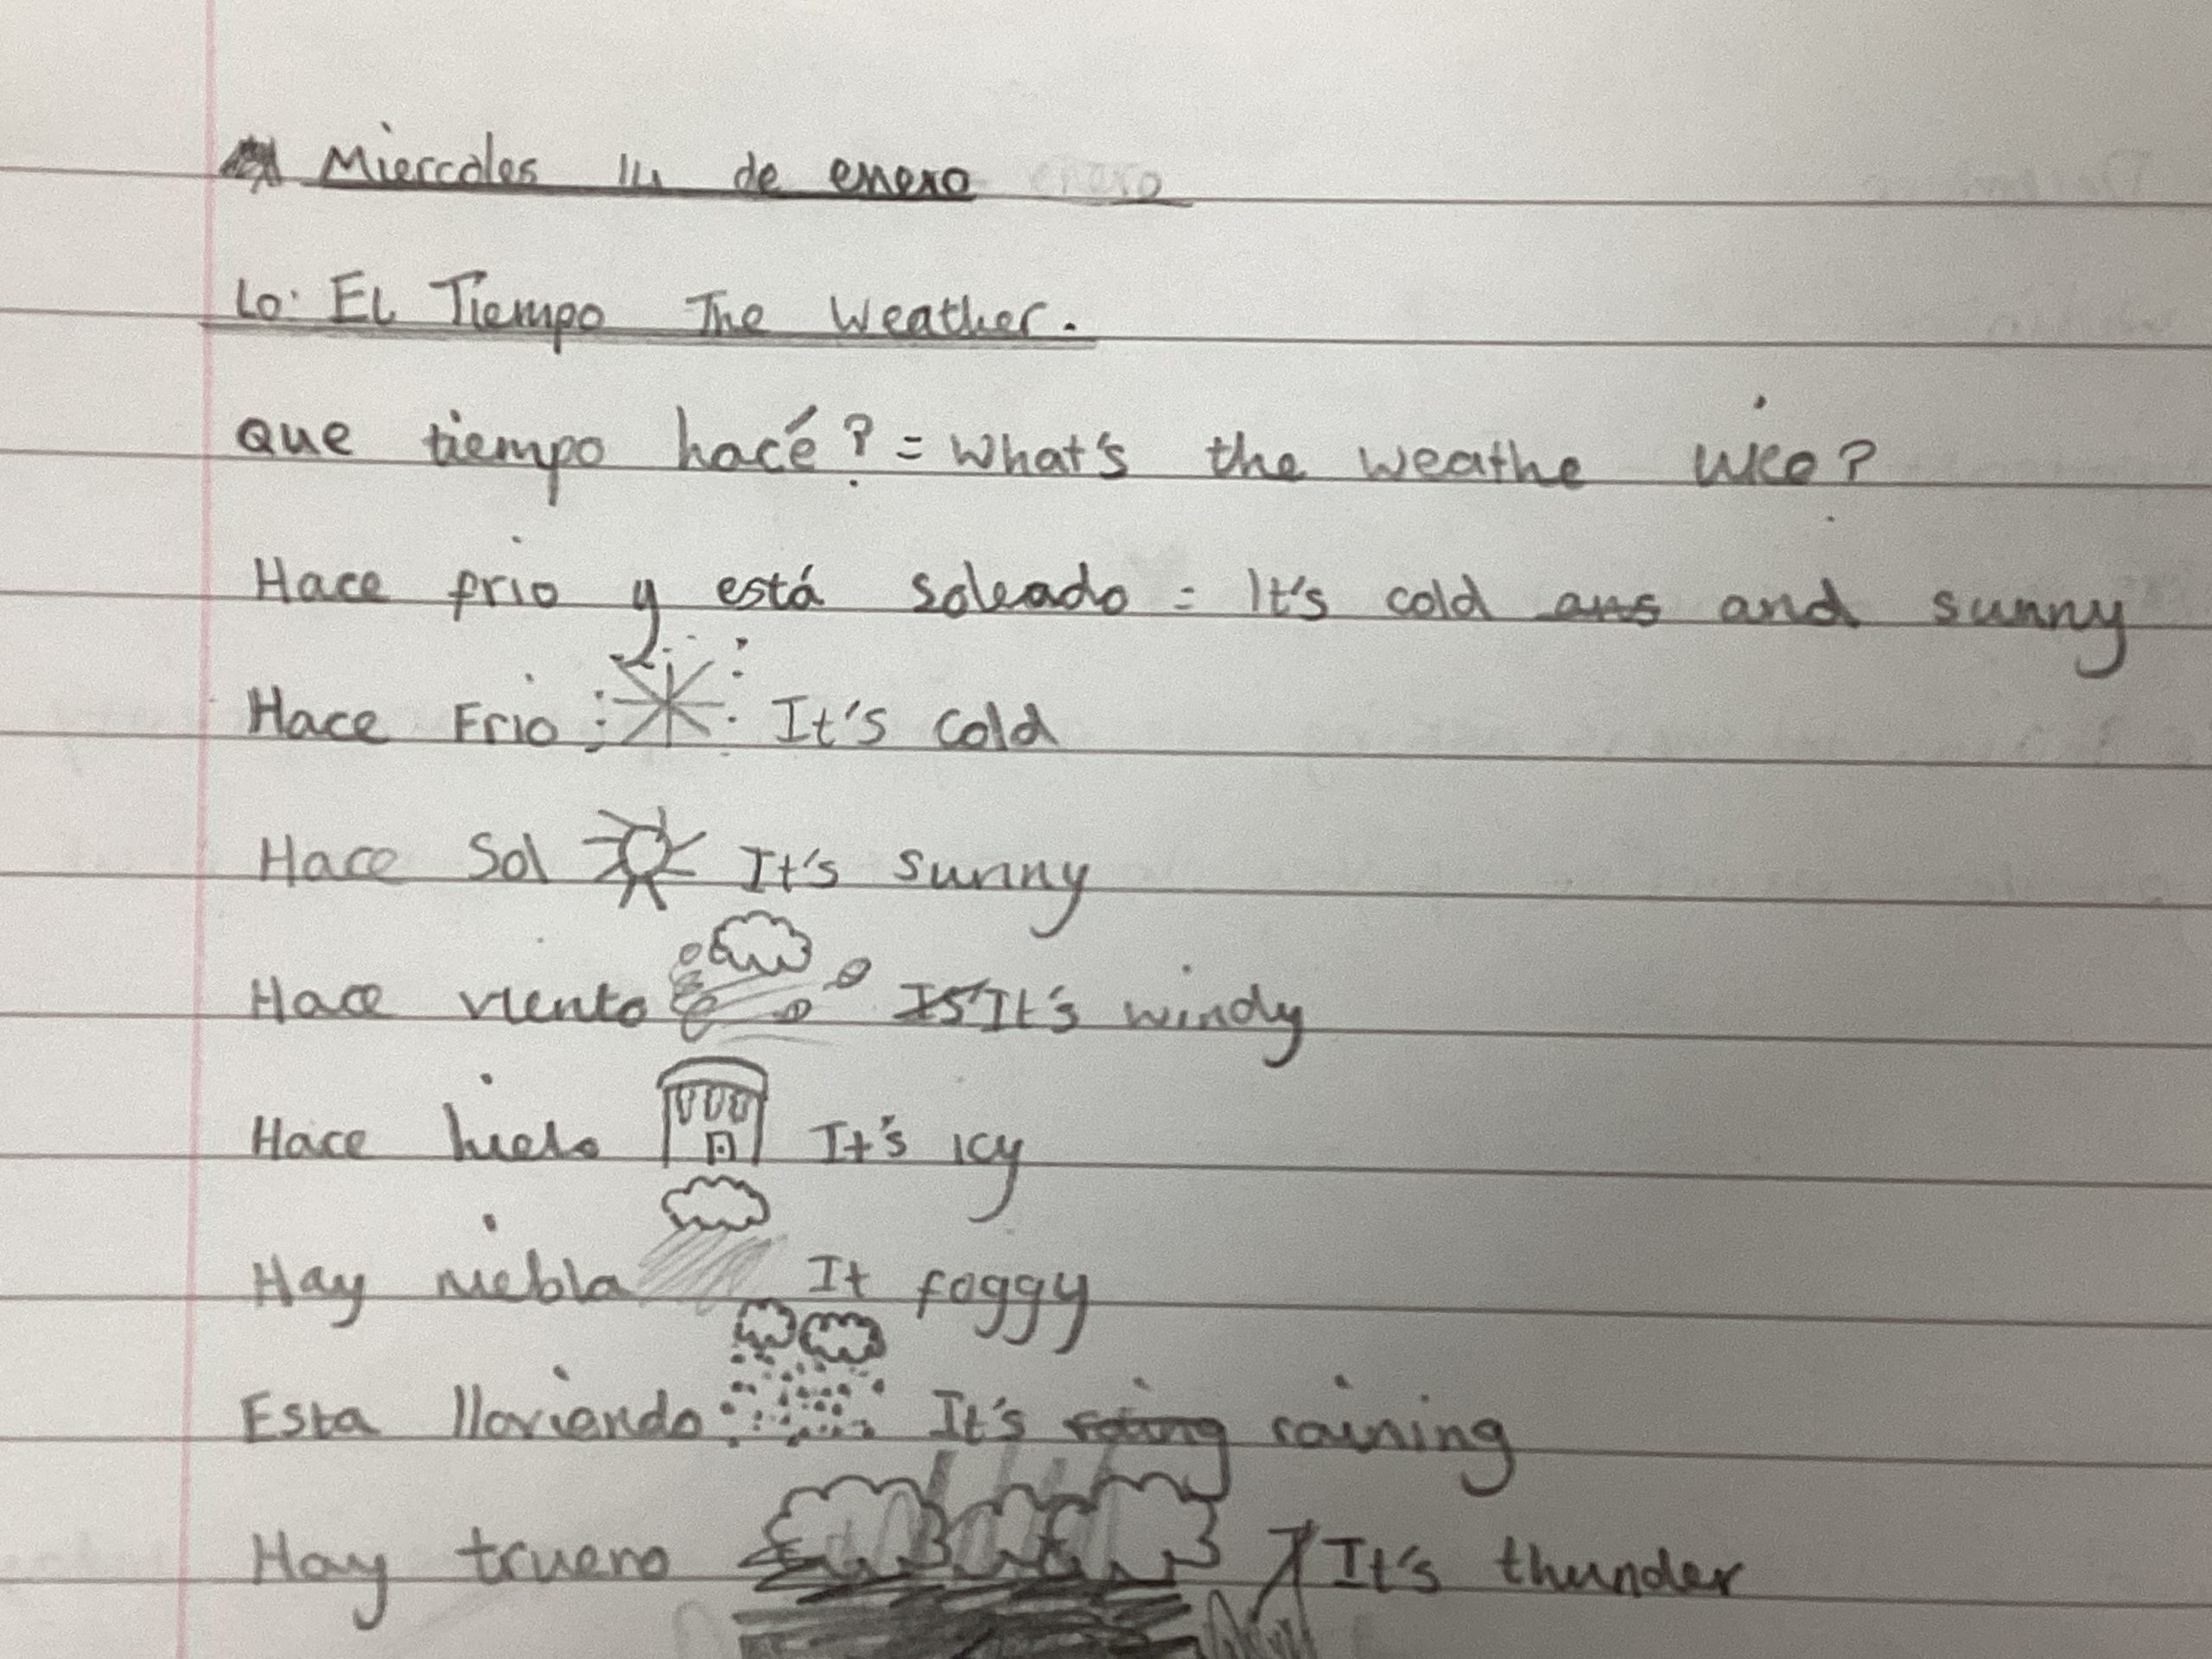 Miercoles 14 de enero enero
Lo: El Tiempo The Weather.
Que tiempo hacé? = What's the weathe like?
Hace frio y está soleado = It's cold ans and sunny
Hace Frio It's cold
Hace Sol It's sunny
Hace viento Is It's windy
Hace hielo It's icy
Hay niebla It foggy
Esta lloviendo It's raining
Hay trueno It's thunder